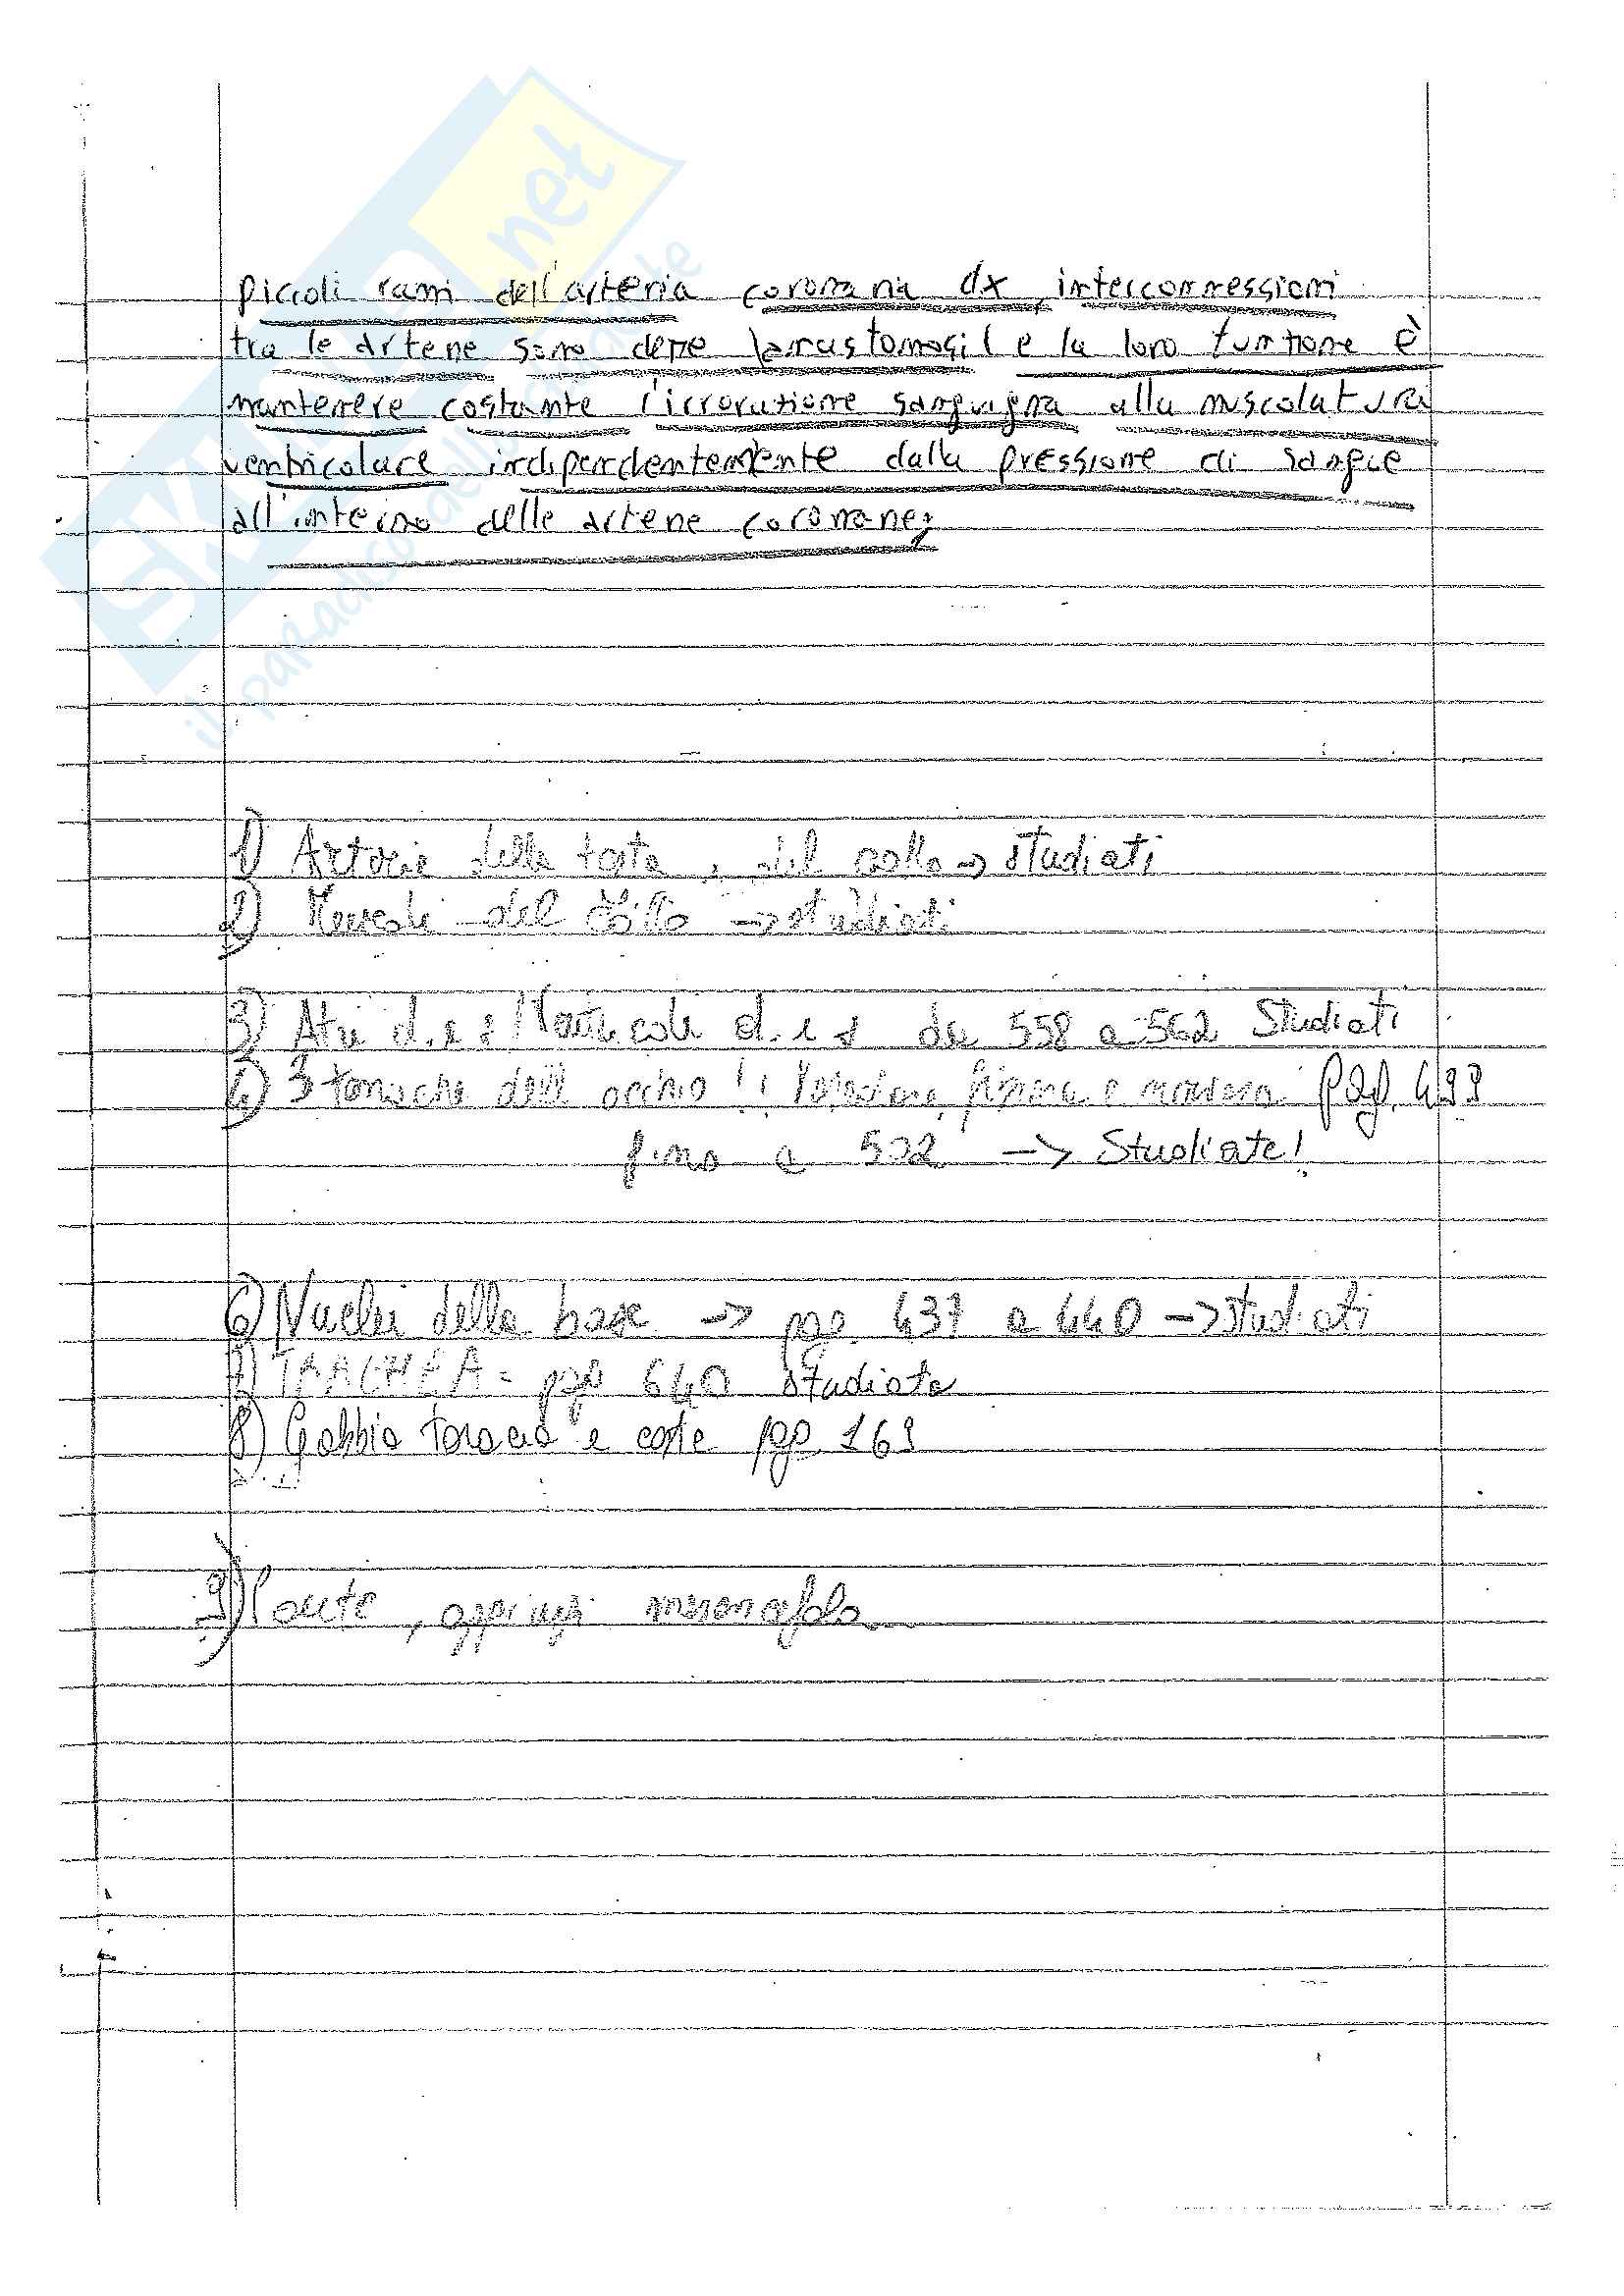 piccoli rami dell'arteria coronaria dx, interconnessioni
tra le arterie sono dette anastomosi e la loro funzione è
mantenere costante l'irrorazione sanguigna alla muscolatura
ventricolare indipendentemente dalla pressione di sangue
all'interno delle arterie coronarie;
1) Arterie della testa, del collo → studiati
2) Muscoli del collo → studiati
3) Atri d. e s Ventricoli d. e s da 558 a 562 Studiati
4) 3 tonache dell' occhio !! e pag. 499
fino a 502 → Studiate!
6) Nuclei della base → pag. 437 a 440 → studiati
7) TRACHEA = pag 640 studiata
8) Gabbia toracica e coste pag. 169
9) Ponte, mesencefalo
net
il paradiso dello studente